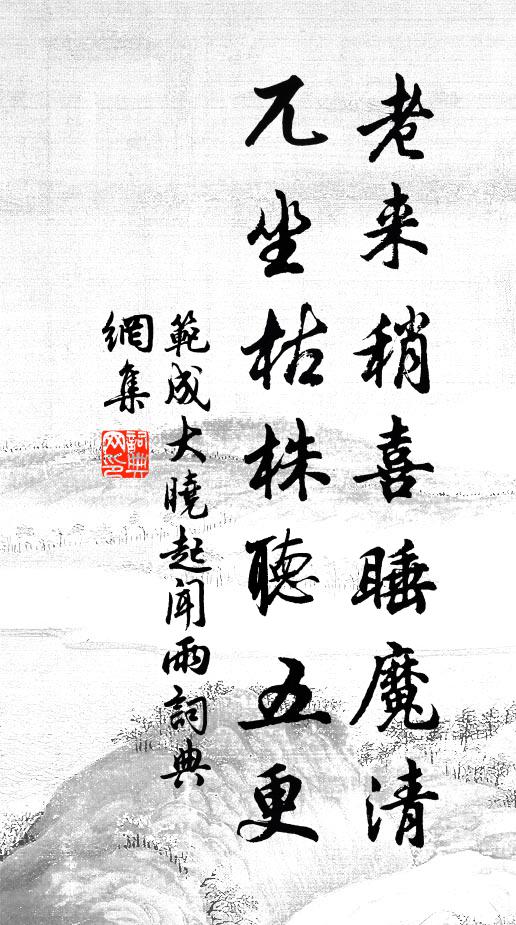 老来稍喜睡魔清
兀坐枯株聽五更
範成大曉起聞雨詞典
網集
詞典
网印